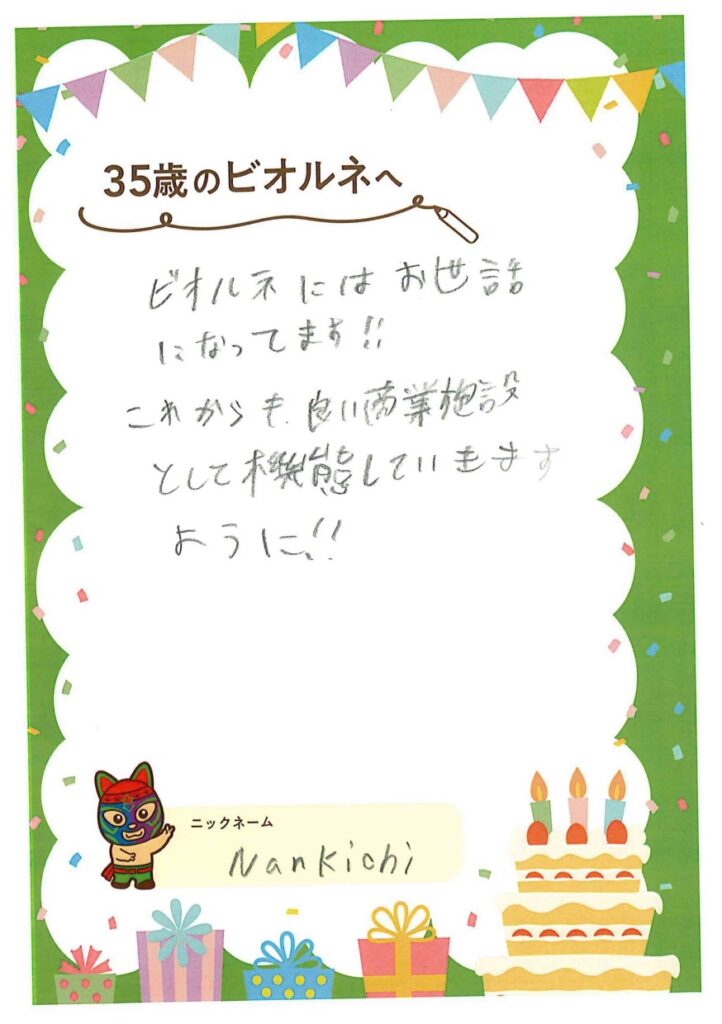 35歳のビオルネへ
ビオルネにはお世話
になってます!!
これからも、良い商業施設
として機能していきます
ように!!
ニックネーム
Nankichi